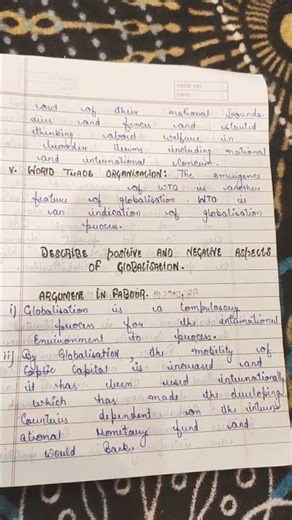 out of their national bounda-
ries and fences and started
thinking about welfare in
broader terms including national
and international concern.
v. WORLD TRADE ORGANISATION: The emergence
of WTO is another
feature of globalisation. WTO is
an indication of globalisation
process.
DESCRIBE positive AND NEGATIVE ASPECTS
OF GLOBALISATION.
ARGUMENT IN FABOUR.
i) Globalisation is a compulsory
process for the international
Environment to process.
ii) By Globalisation, the mobility of
Capital is increased and
it has been used internationally
which has made the developing
Countries dependent on the intern
ational Monetary fund and
would Bank.